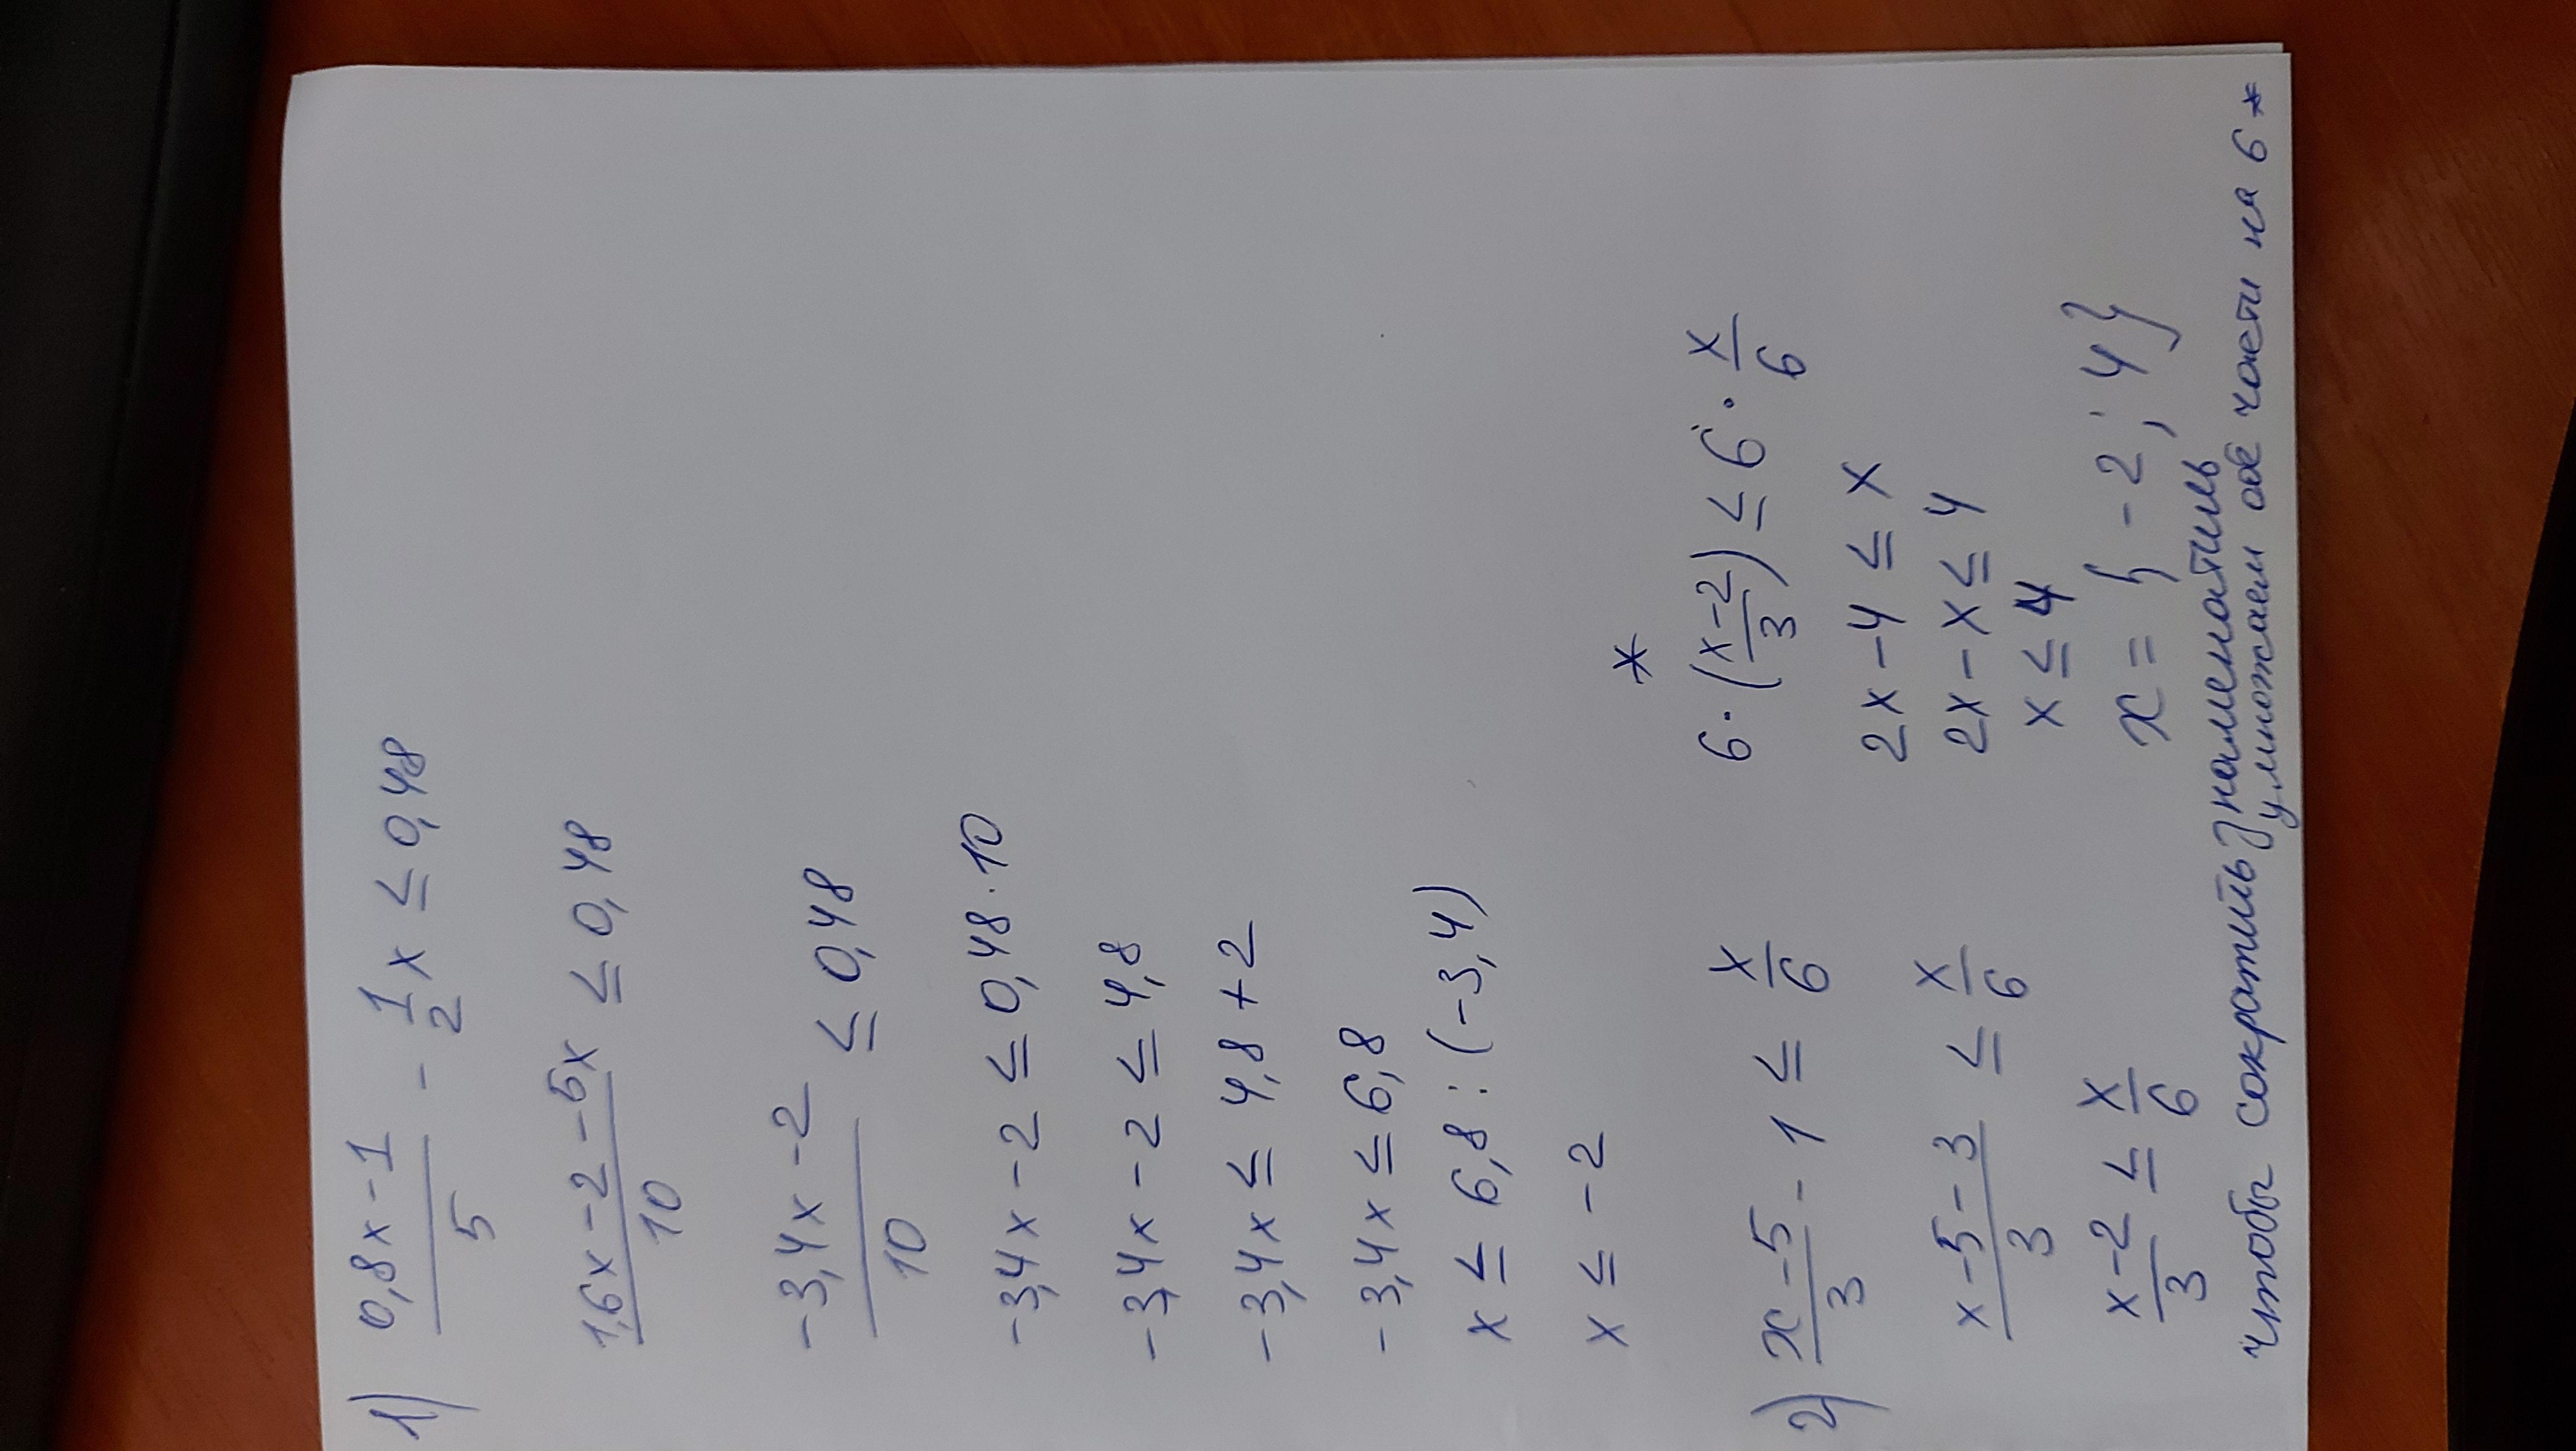 1) (0,8x-1)/5 - 1/2 x ≤ 0,48
(1,6x-2-5x)/10 ≤ 0,48
(-3,4x-2)/10 ≤ 0,48
-3,4x-2 ≤ 0,48·10
-3,4x-2 ≤ 4,8
-3,4x ≤ 4,8+2
-3,4x ≤ 6,8
x ≤ 6,8:(-3,4)
x ≤ -2
2) (x-5)/3 - 1 ≤ x/6
(x-5-3)/3 ≤ x/6
(x-2)/3 ≤ x/6
*
6·((x-2)/3) ≤ 6·x/6
2x-4 ≤ x
2x-x ≤ 4
x ≤ 4
x = {-2; 4}
чтобы сократить знаменатиль
умножаем обе части на 6 *